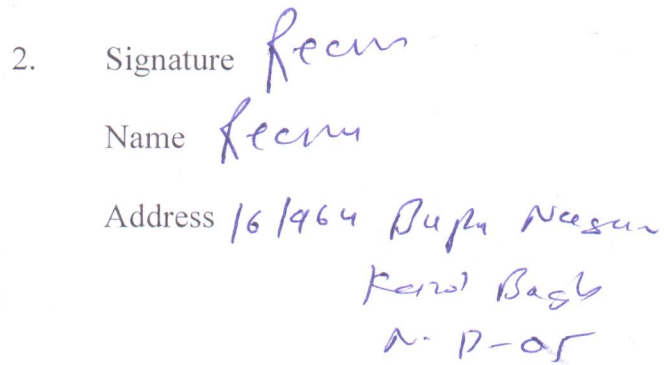 2. Signature Reenu
Name Reenu
Address 16/964 Bapa Nagar
Karol Bagh
N. D-05